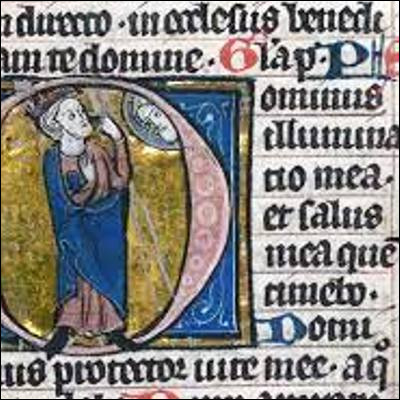 n directo · in ecclesiis benedi
am te domine · Gl'a p · P
Dominus
illumina
tio mea ·
et salus
mea quē
timebo ·
Domi
us protector uite mee · a q°